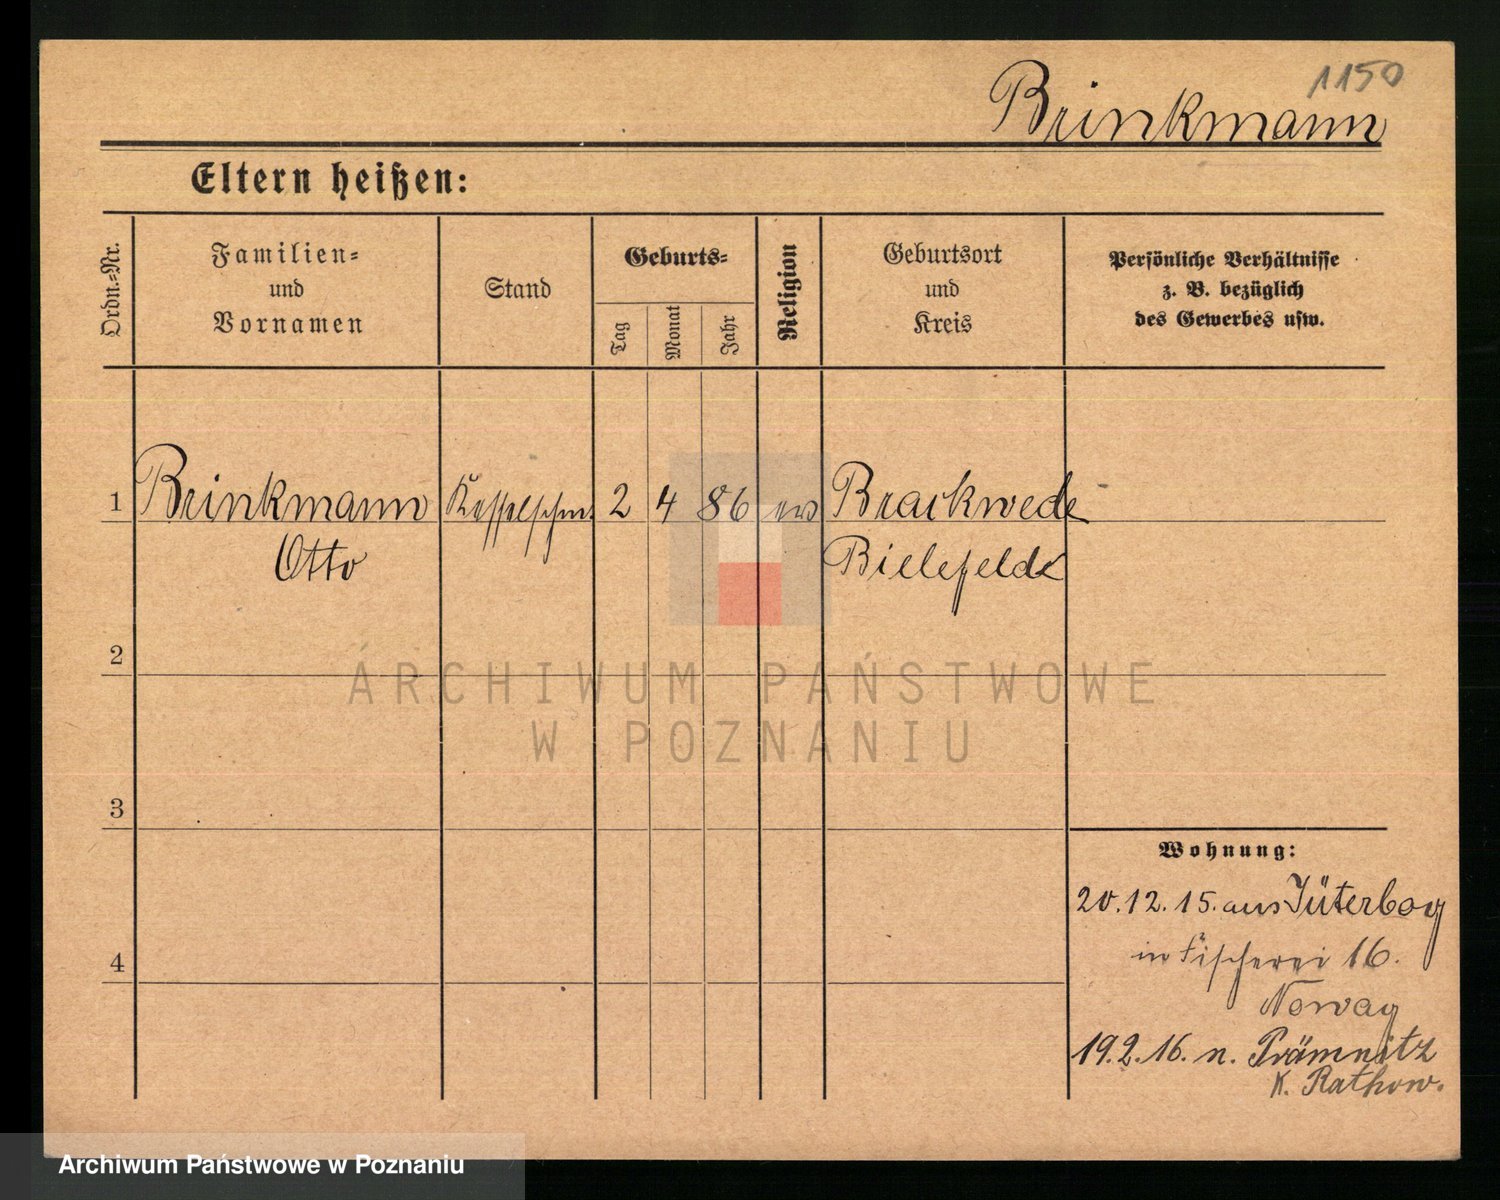 1150
Brinkmann
Eltern heißen:
Ordn.-Nr.
Familien-
und
Vornamen
Stand
Geburts-
Tag
Monat
Jahr
Religion
Geburtsort
und
Kreis
Persönliche Verhältnisse
z. B. bezüglich
des Gewerbes usw.
1 Brinkmann Kesselschm. 2 4 86 ev Brackwede
Otto Bielefeld
2
ARCHIWUM PAŃSTWOWE
W POZNANIU
3
Wohnung:
20.12.15. aus Jüterbog
4
in Fischerei 16.
Noway
19.2.16. n. Prämnitz
K. Rathow.
Archiwum Państwowe w Poznaniu